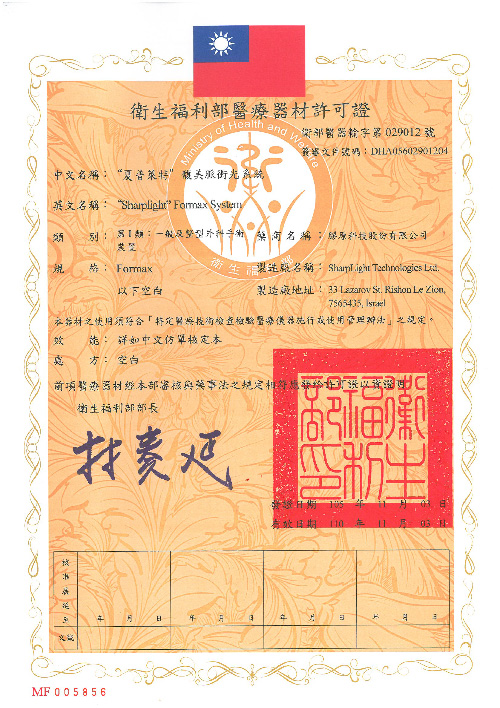 衛生福利部醫療器材許可證
Ministry of Health and Welfare
衛部醫器輸字第 029012 號
簽審文件號碼：DHA05602901204
中文名稱：“夏普萊特”馥美脈衝光系統
英文名稱：“Sharplight” Formax System
類 別：第I類：一般及整型外科手術裝置
藥商名稱：膠原科技股份有限公司
規 格：Formax
製造廠名稱：SharpLight Technologies Ltd.
以下空白
製造廠地址：33 Lazarov St. Rishon Le Zion, 7565435, Israel
本器材之使用須符合「特定醫療技術檢查檢驗醫療儀器施行或使用管理辦法」之規定。
效 能：詳如中文仿單核定本
處 方：空白
前項醫療器材經本部審核與藥事法之規定相符應發給許可證以資證明
衛生福利部部長
林奏延
衛生福利部印
發證日期 105 年 11 月 03 日
有效日期 110 年 11 月 03 日
年 月 日 年 月 日 年 月 日 年 月 日
MF 005856